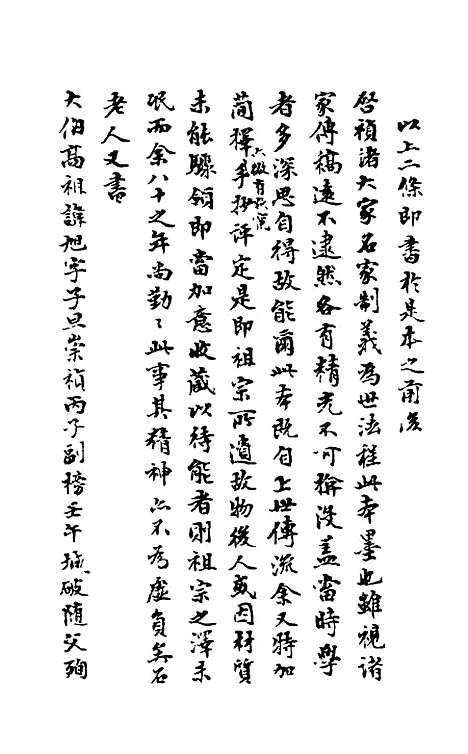 以上二條即書於是本之前後
啓禎諸大家名家制義為世法程此本墨也雖視諸
家傳稿遠不逮然各有精光不可稱沒蓋當時學
者多深思自得故能爾此本既自上世傳流余又特加
蕳擇手抄評定是即祖宗所遺故物後人或因材質
未能驟領即當加意收藏以待能者則祖宗之澤未
泯而余八十之年尚勤〻此事其精神亦不為虛負矣石
老人又書
大伯高祖諱旭字子旦崇禎丙子副榜壬午城破隨父殉